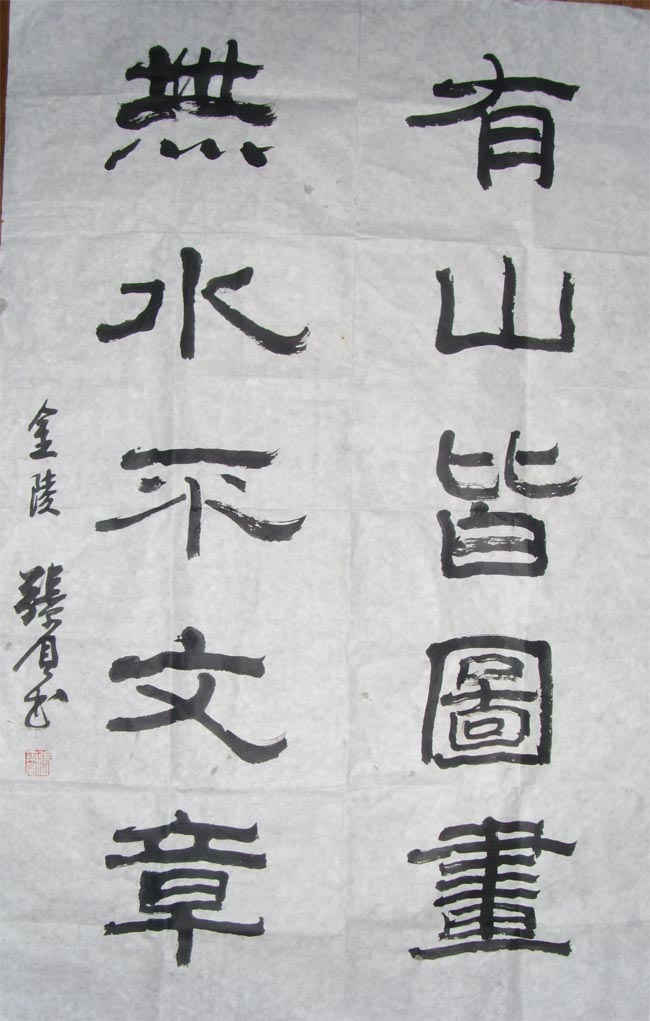 有山皆圖畫
無水不文章
金陵
书